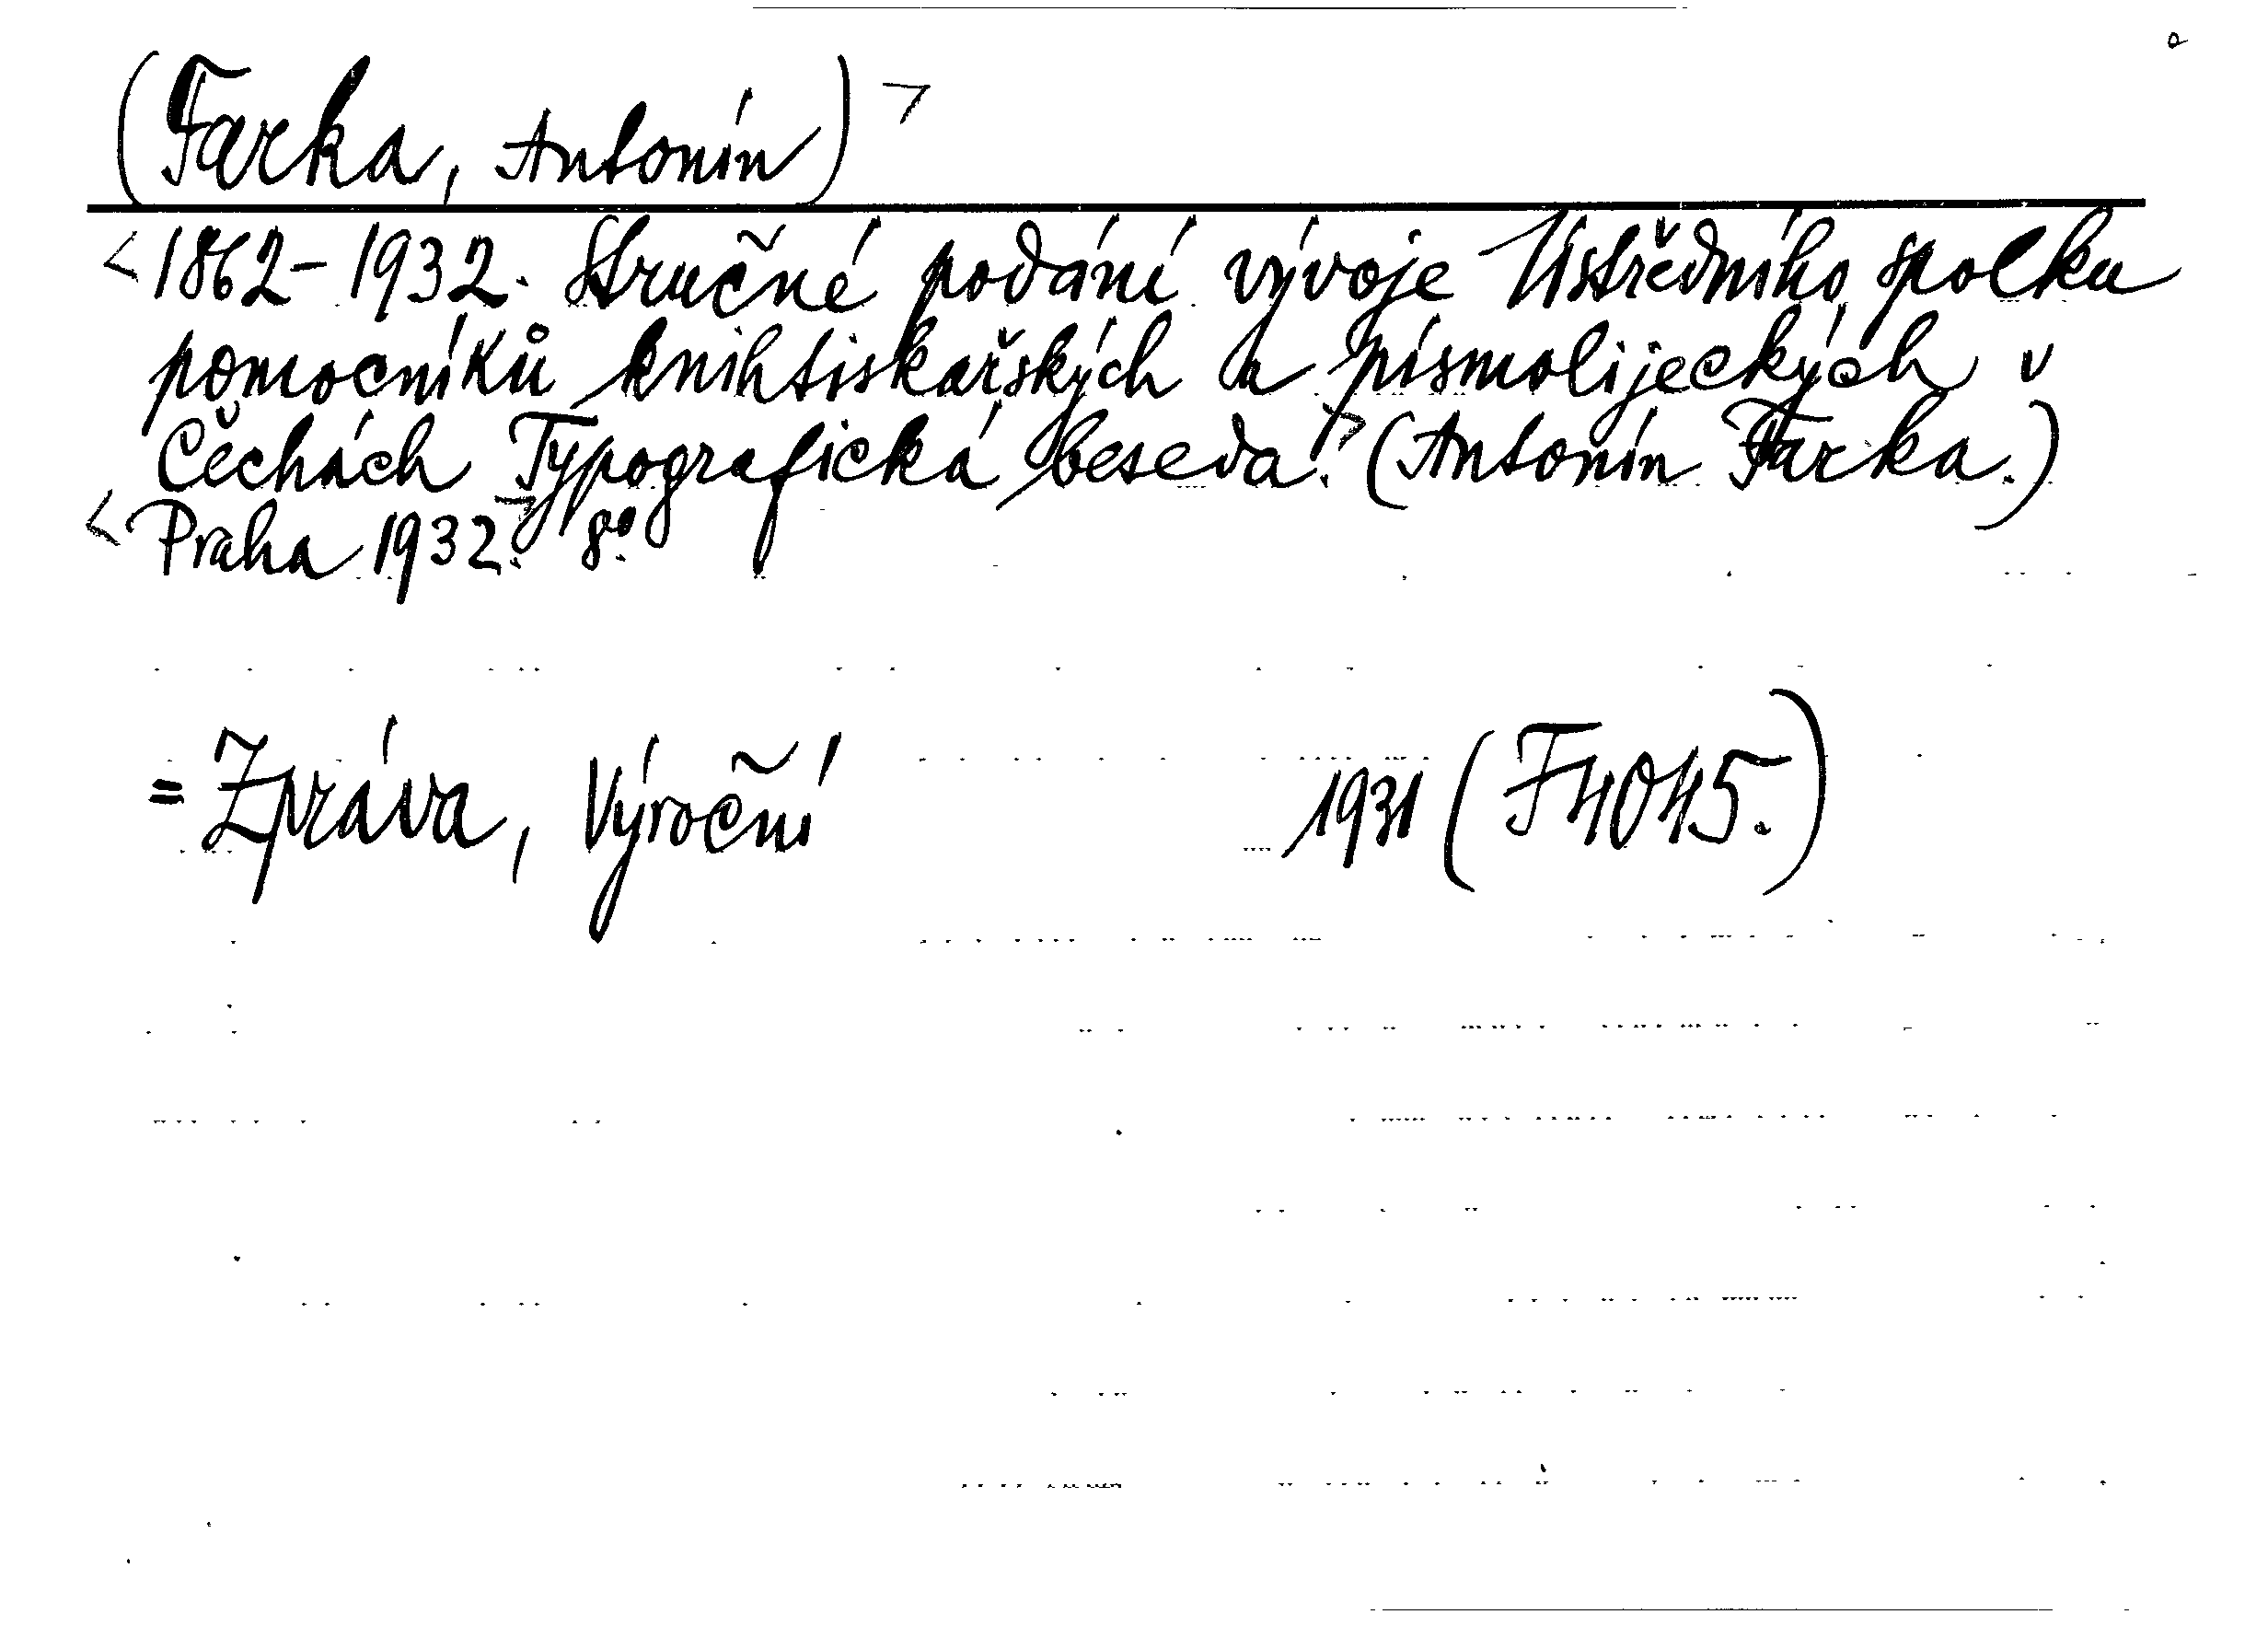 (Farka, Antonín)
1862-1932. Stručné podání vývoje Ústředního spolku
pomocníků knihtiskařských a písmolijeckých v
Čechách Typografická beseda. (Antonín Farka.)
Praha 1932. 8°.
= Zpráva, Výroční 1931 (F4045.)